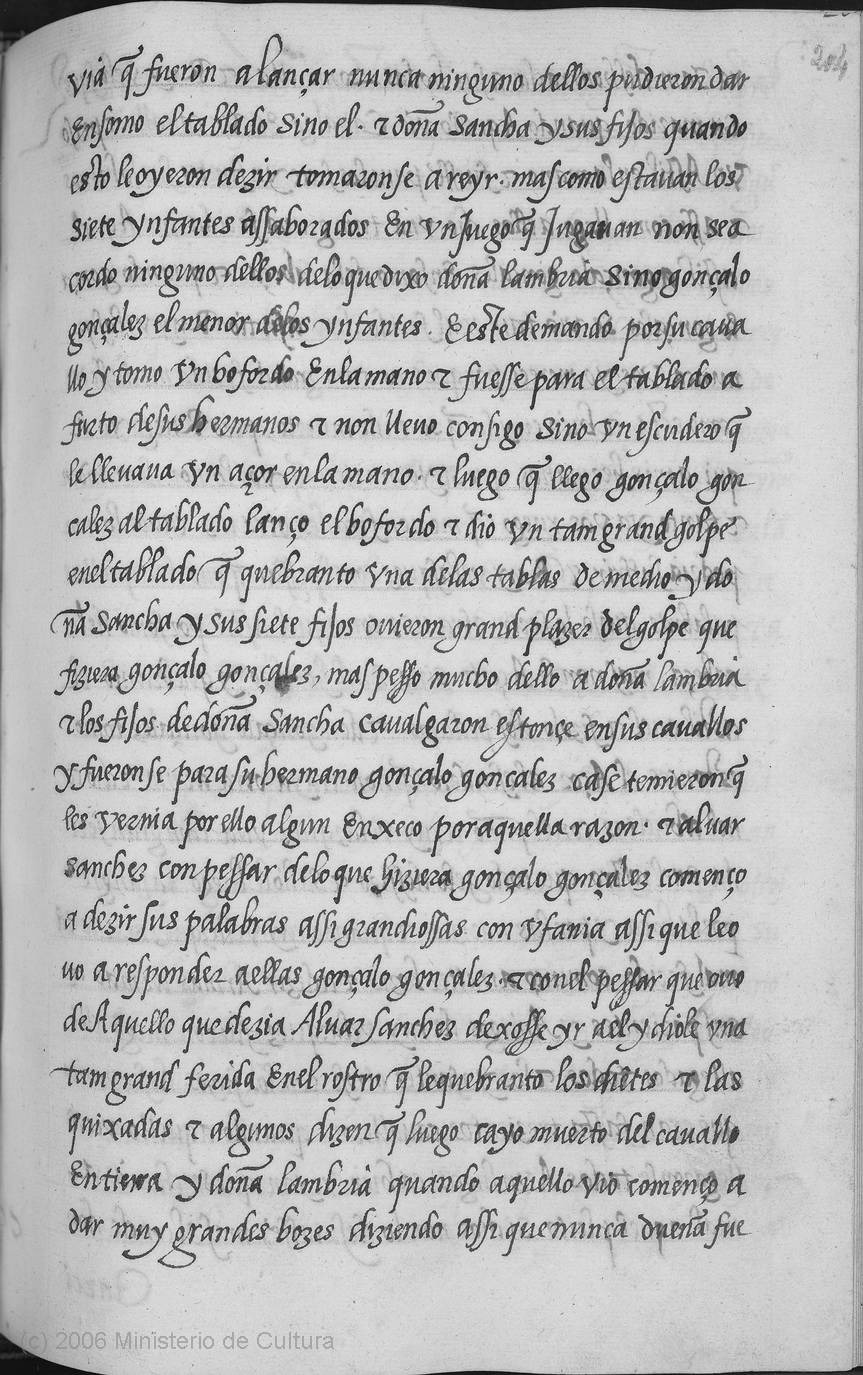 204
vià q̃ fueron alançar nunca ninguno dellos pudieron dar
ensomo el tablado sino el · τ doña Sancha y sus fijos quando
esto le oyeron dezir tomaronse a reyr · mas como estauan los
siete ynfantes assaborados en vn juego q̃ jugauan non sea
cordo ninguno dellos delo que dixo doña lambrià sino gonçalo
gonçalez el menor delos ynfantes · E este demando por su caua
llo y tomo vn bofordo en la mano τ fuesse para el tablado a
furto de sus hermanos τ non lleuo consigo sino vn escudero q̃
le lleuaua vn açor en la mano · τ luego q̃ llego gonçalo gon
calez al tablado lanço el bofordo τ diò vn tam grand golpe
en el tablado q̃ quebranto vna delas tablas de medio y do
ña Sancha y sus siete fijos ouieron grand plazer del golpe que
fiziera gonçalo gonçalez, mas pesso mucho dello a doña lambrià
τ los fijos de doña Sancha caualgaron estonçe en sus cauallos
y fueronse para su hermano gonçalo goncalez casè temieron q̃
les vernia por ello algun enxeco por aquella razon · τ aluar
sanchez con pessar delo que hiziera gonçalo gonçalez començo
a dezir sus palabras assi grandiossas con vfania assi que leo
uo a responder a ellas gonçalo gonçalez · τ con el pessar que ouo
de Aquello que dezia Aluar sanchez dexosse yr a el y diòle vna
tam grand ferida en el rostro q̃ le quebranto los diẽtes τ las
quixadas τ algunos dizen q̃ luego cayo muerto del cauallo
en tierra y doña lambrià quando aquello viò començo a
dar muy grandes bozes diziendo assi que nunca dueña fue
(c) 2006 Ministerio de Cultura